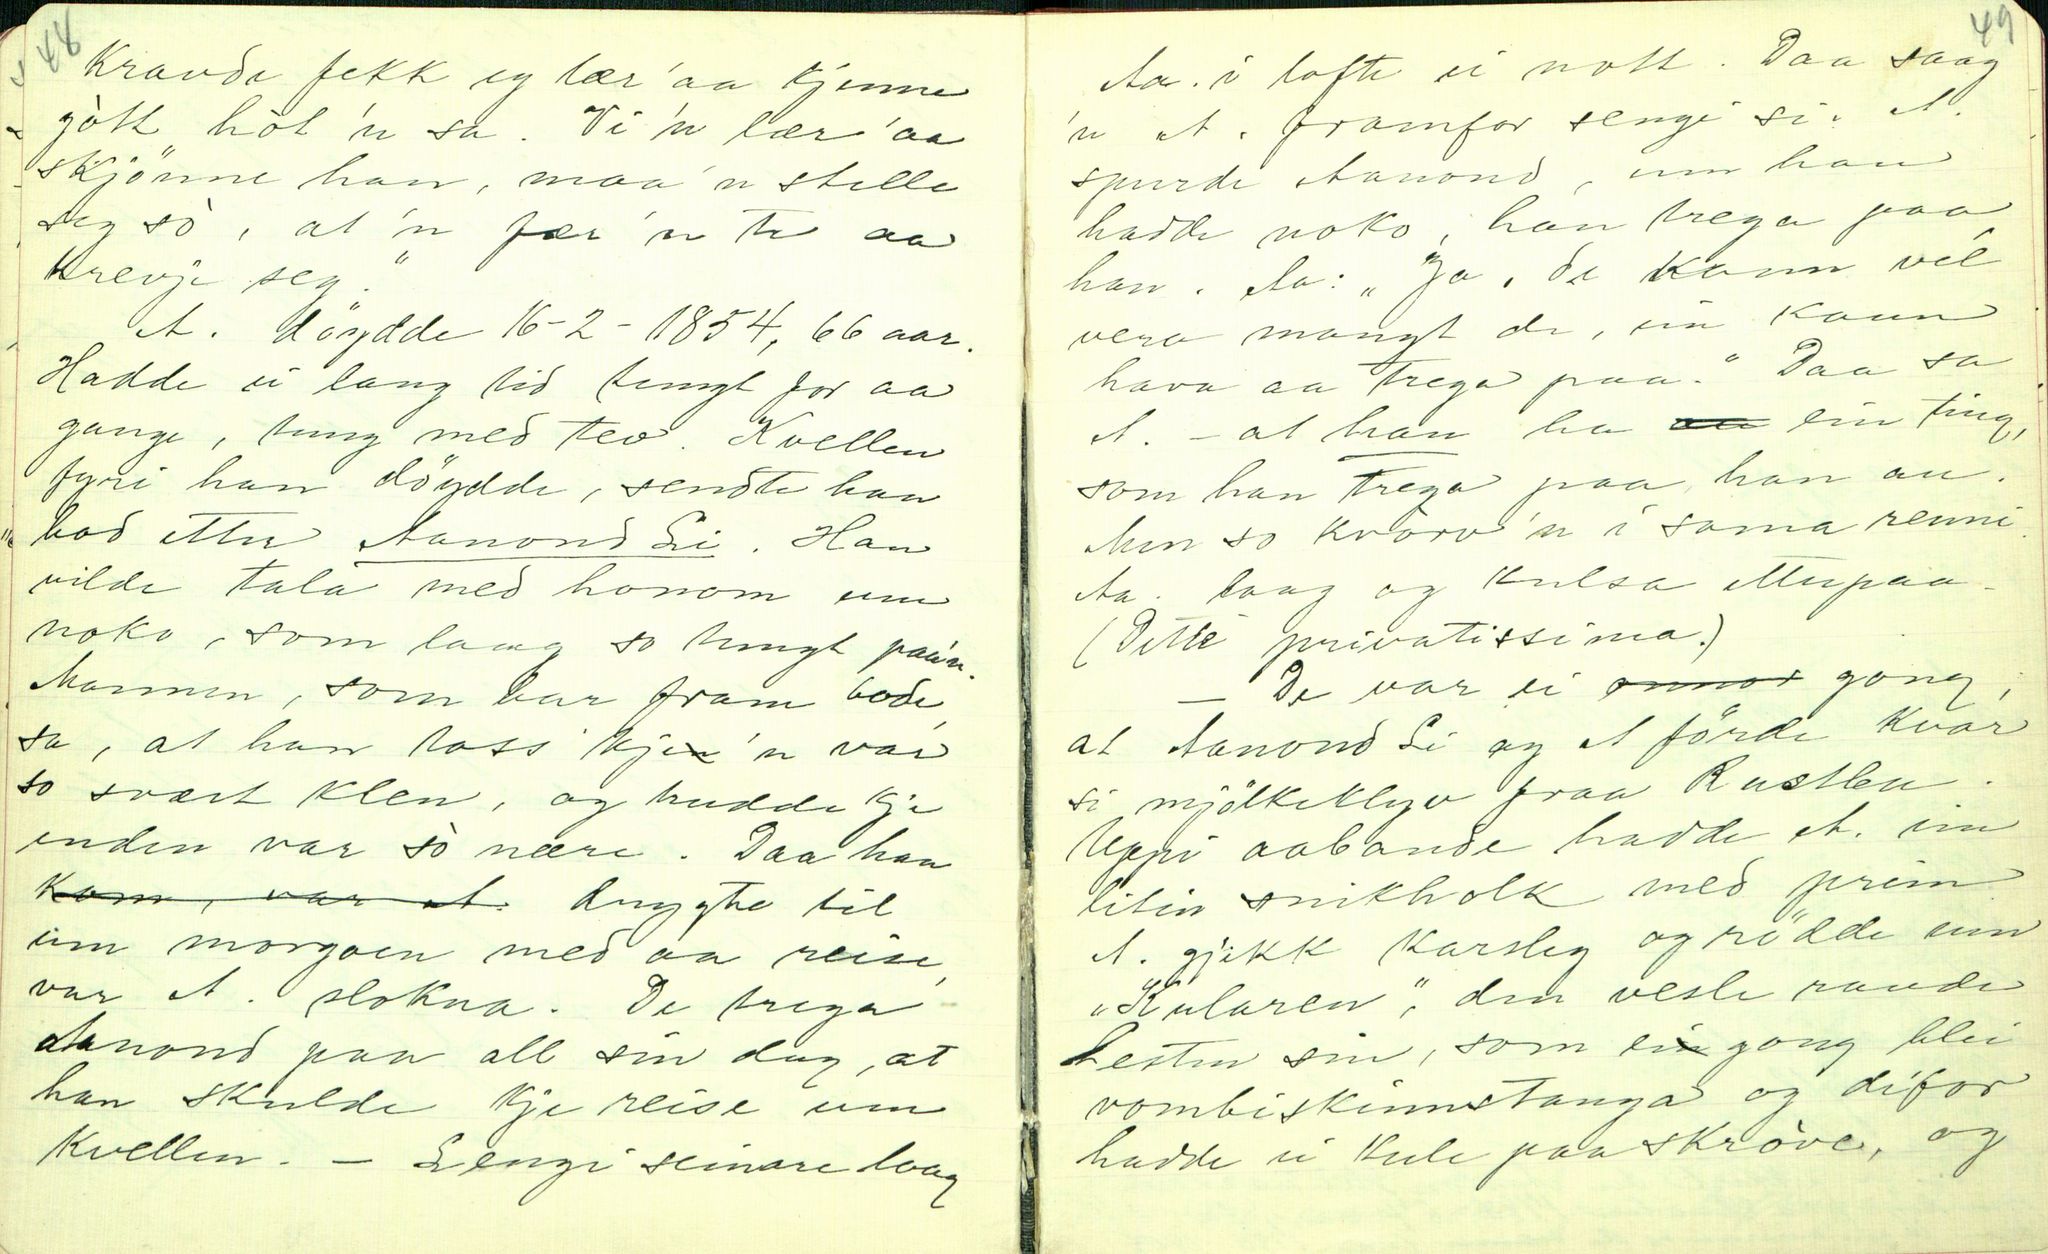 48
Kravde fekk eg lær' aa kjenne
gòtt hòt 'n sa. Vi 'n lær' aa
skjönne han, maa 'n stelle
seg sò, at 'n fær 'n te aa
krevje seg."
A. döydde 16-2-1854, 66 aar.
Hadde ei lang tid tungt for aa
gange, tung med tev. Kvellen
fyri han döydde, sendte han
bod etter Aanond Li. Han
vilde tala med honom um
noko, som laag so tungt paa 'n.
Mannen, som bar fram bode,
sa, at han tass kje 'n var
so svært klen, og trudde kje
enden var sò nære. Daa han
kom, var A. drygte til
um morgoen med aa reise,
var A. slokna. De trega
Aanond paa all sin dag, at
han skulde kje reise um
kvellen. – Lengi seinare laag
49
Aa. i lofte ei nott. Daa saag
'n A. framfor sengi si. A.
spurde Aanond, um han
hadde noko, han trega paa
han. Aa: „Ja, de kann vel
vera mangt de, ein kann
hava aa trega paa." Daa sa
A. – at han ha ein ting,
som han trega paa, han au.
Men so kvarv 'n i sama renni.
Aa. laag og kulsa etterpaa.
(Dette privatissima.)
– De var ei annor gong,
at Aanond Li og A förde kvar
si mjölkeklyv fraa Rustlea.
Uppi aabande hadde A. ein
liten snikholk med prim
A. gjekk karsleg og rödde um
„Kularen", den vesle raude
hesten sin, som ein gong blei
vombiskinnstanga og difor
hadde ei kule paa skròve, og